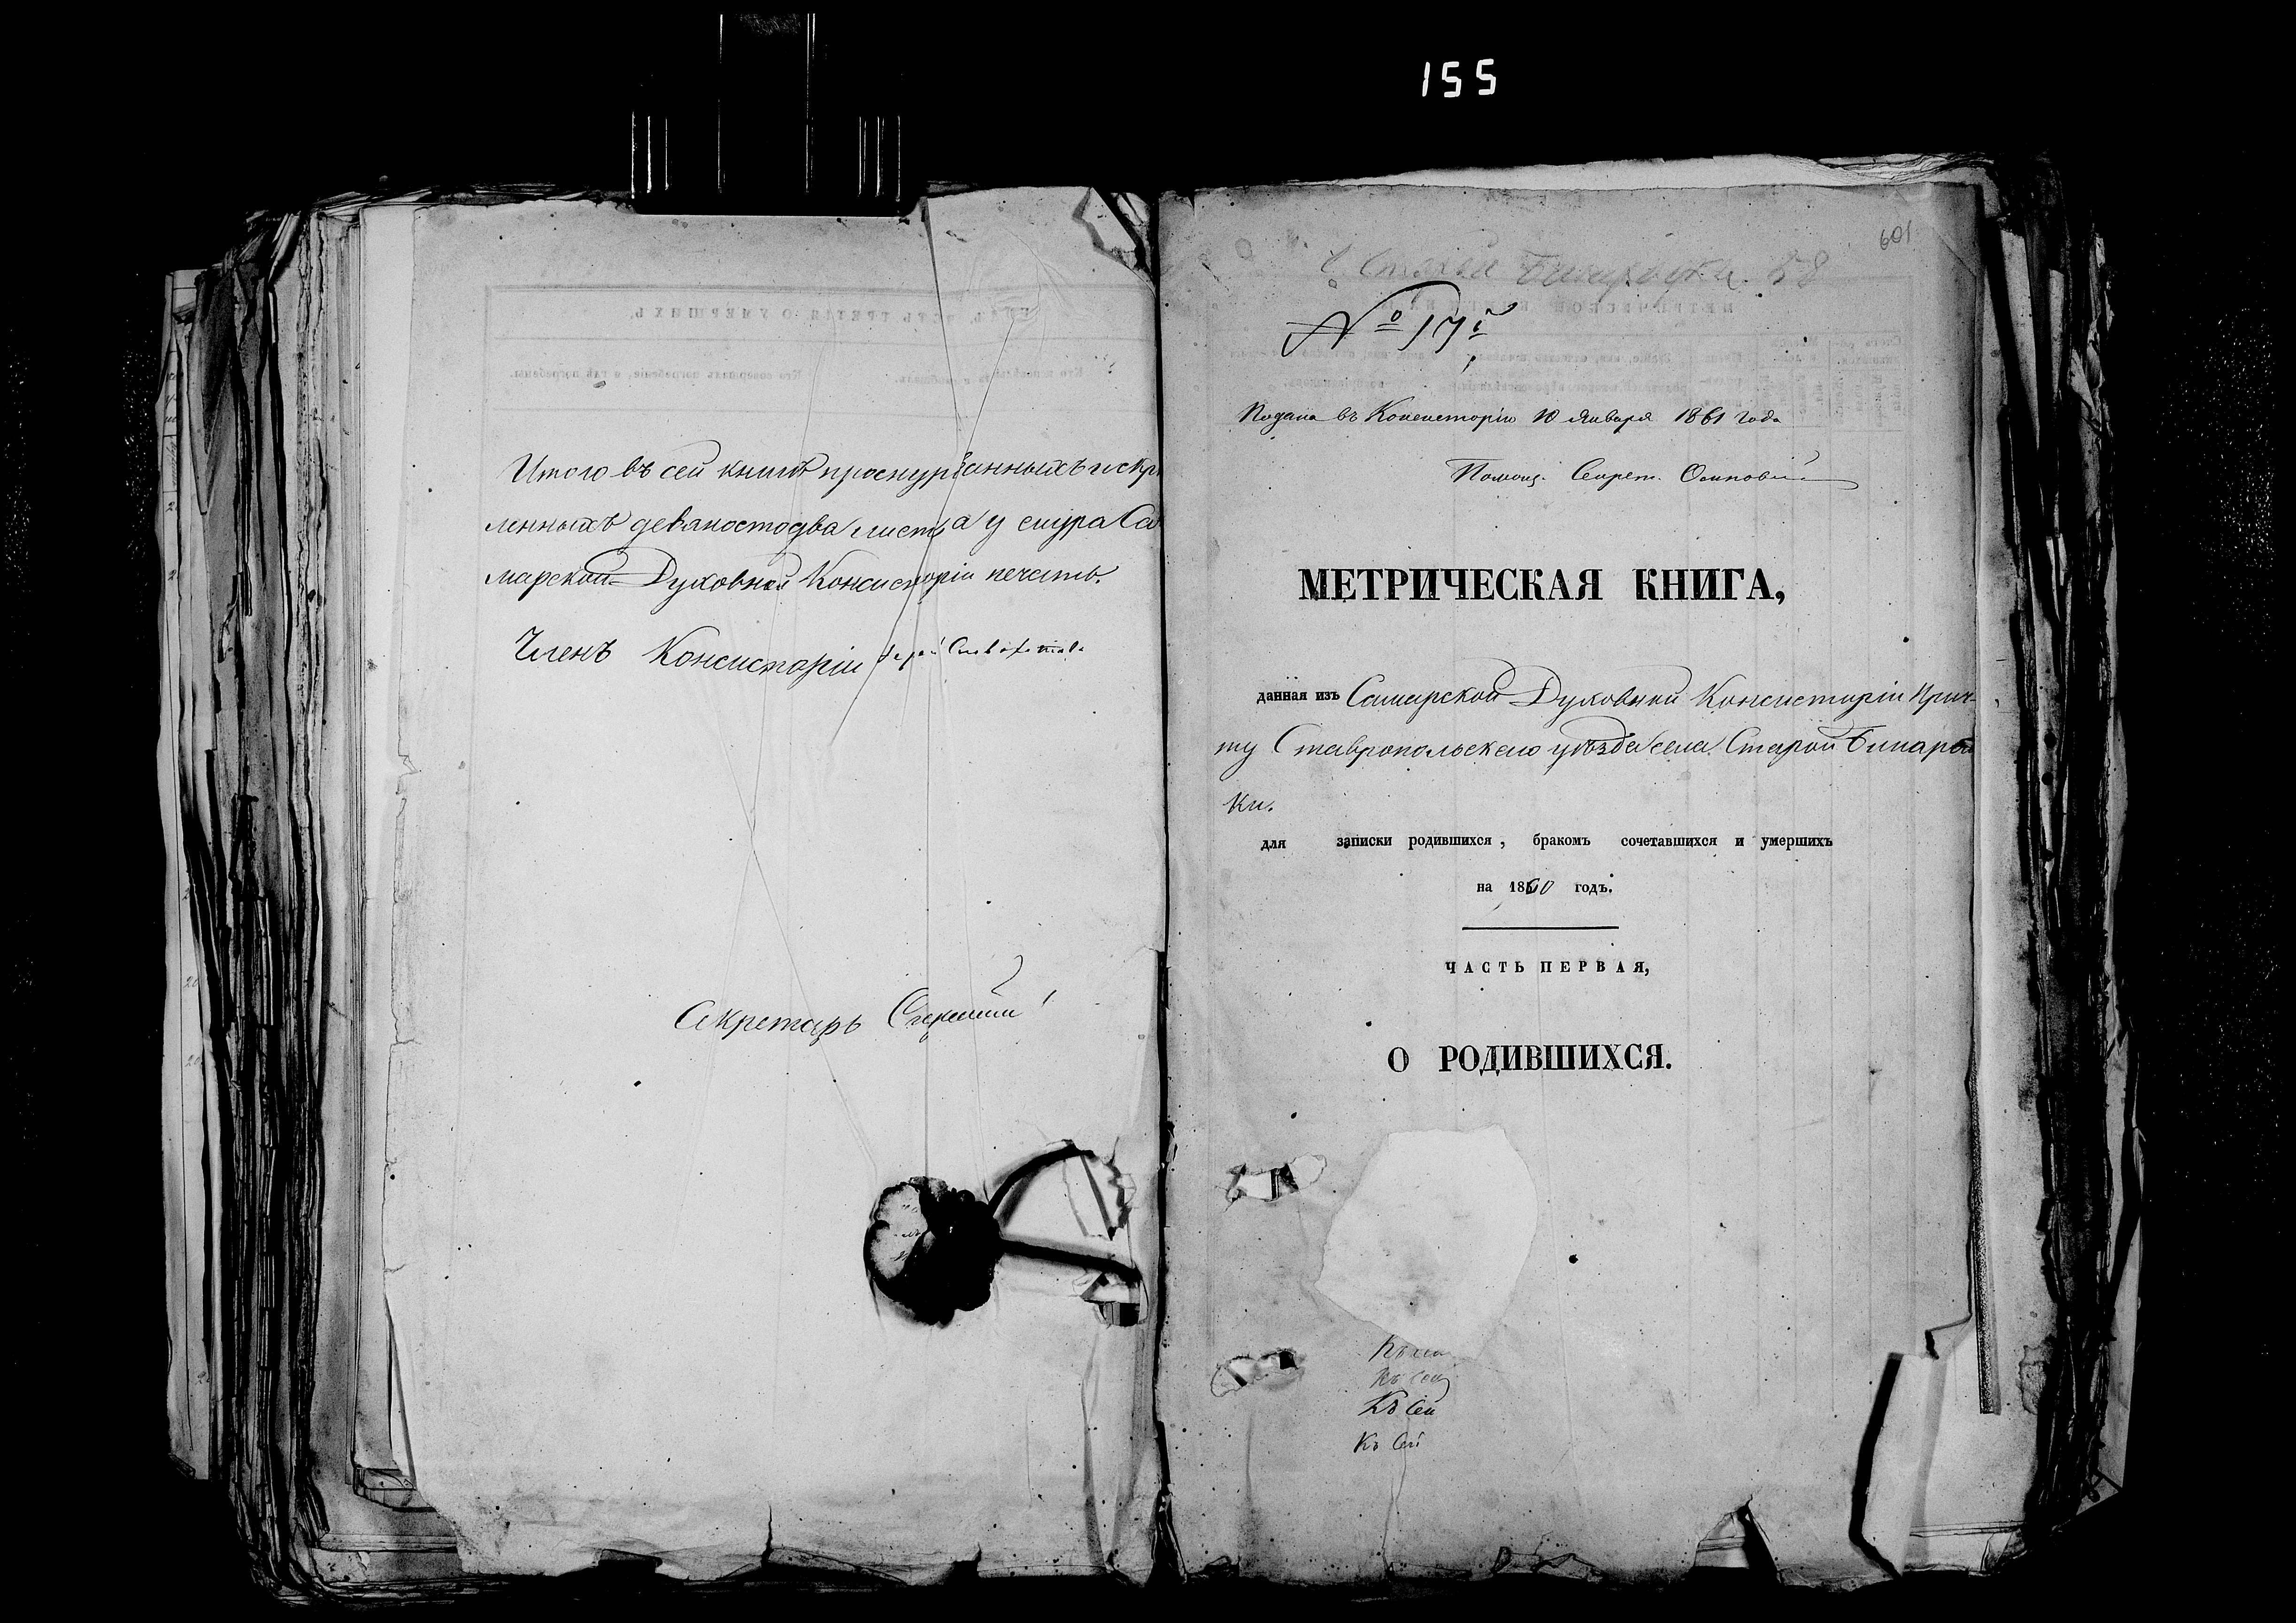 155
Итого въ сей книгѣ прошнурованныхъ и скрѣ
пленныхъ девяносто два листа у снура Са
марской Духовной Консисторіи печать.
Членъ Консисторіи
Секретарь
601
С. Старой Бинарадки 58
№ 17й
Подана въ Консисторію 10 Января 1861 года
Помощ. Секрет.
МЕТРИЧЕСКАЯ КНИГА,
данная изъ Самарской Духовной Консисторіи прич-
ту Ставропольскаго уѣзда села Старой Бинарад
ки.
для записки родившихся, бракомъ сочетавшихся и умершихъ
на 1860 годъ.
ЧАСТЬ ПЕРВАЯ,
О РОДИВШИХСЯ.
Къ сей
Къ сей
Къ сей